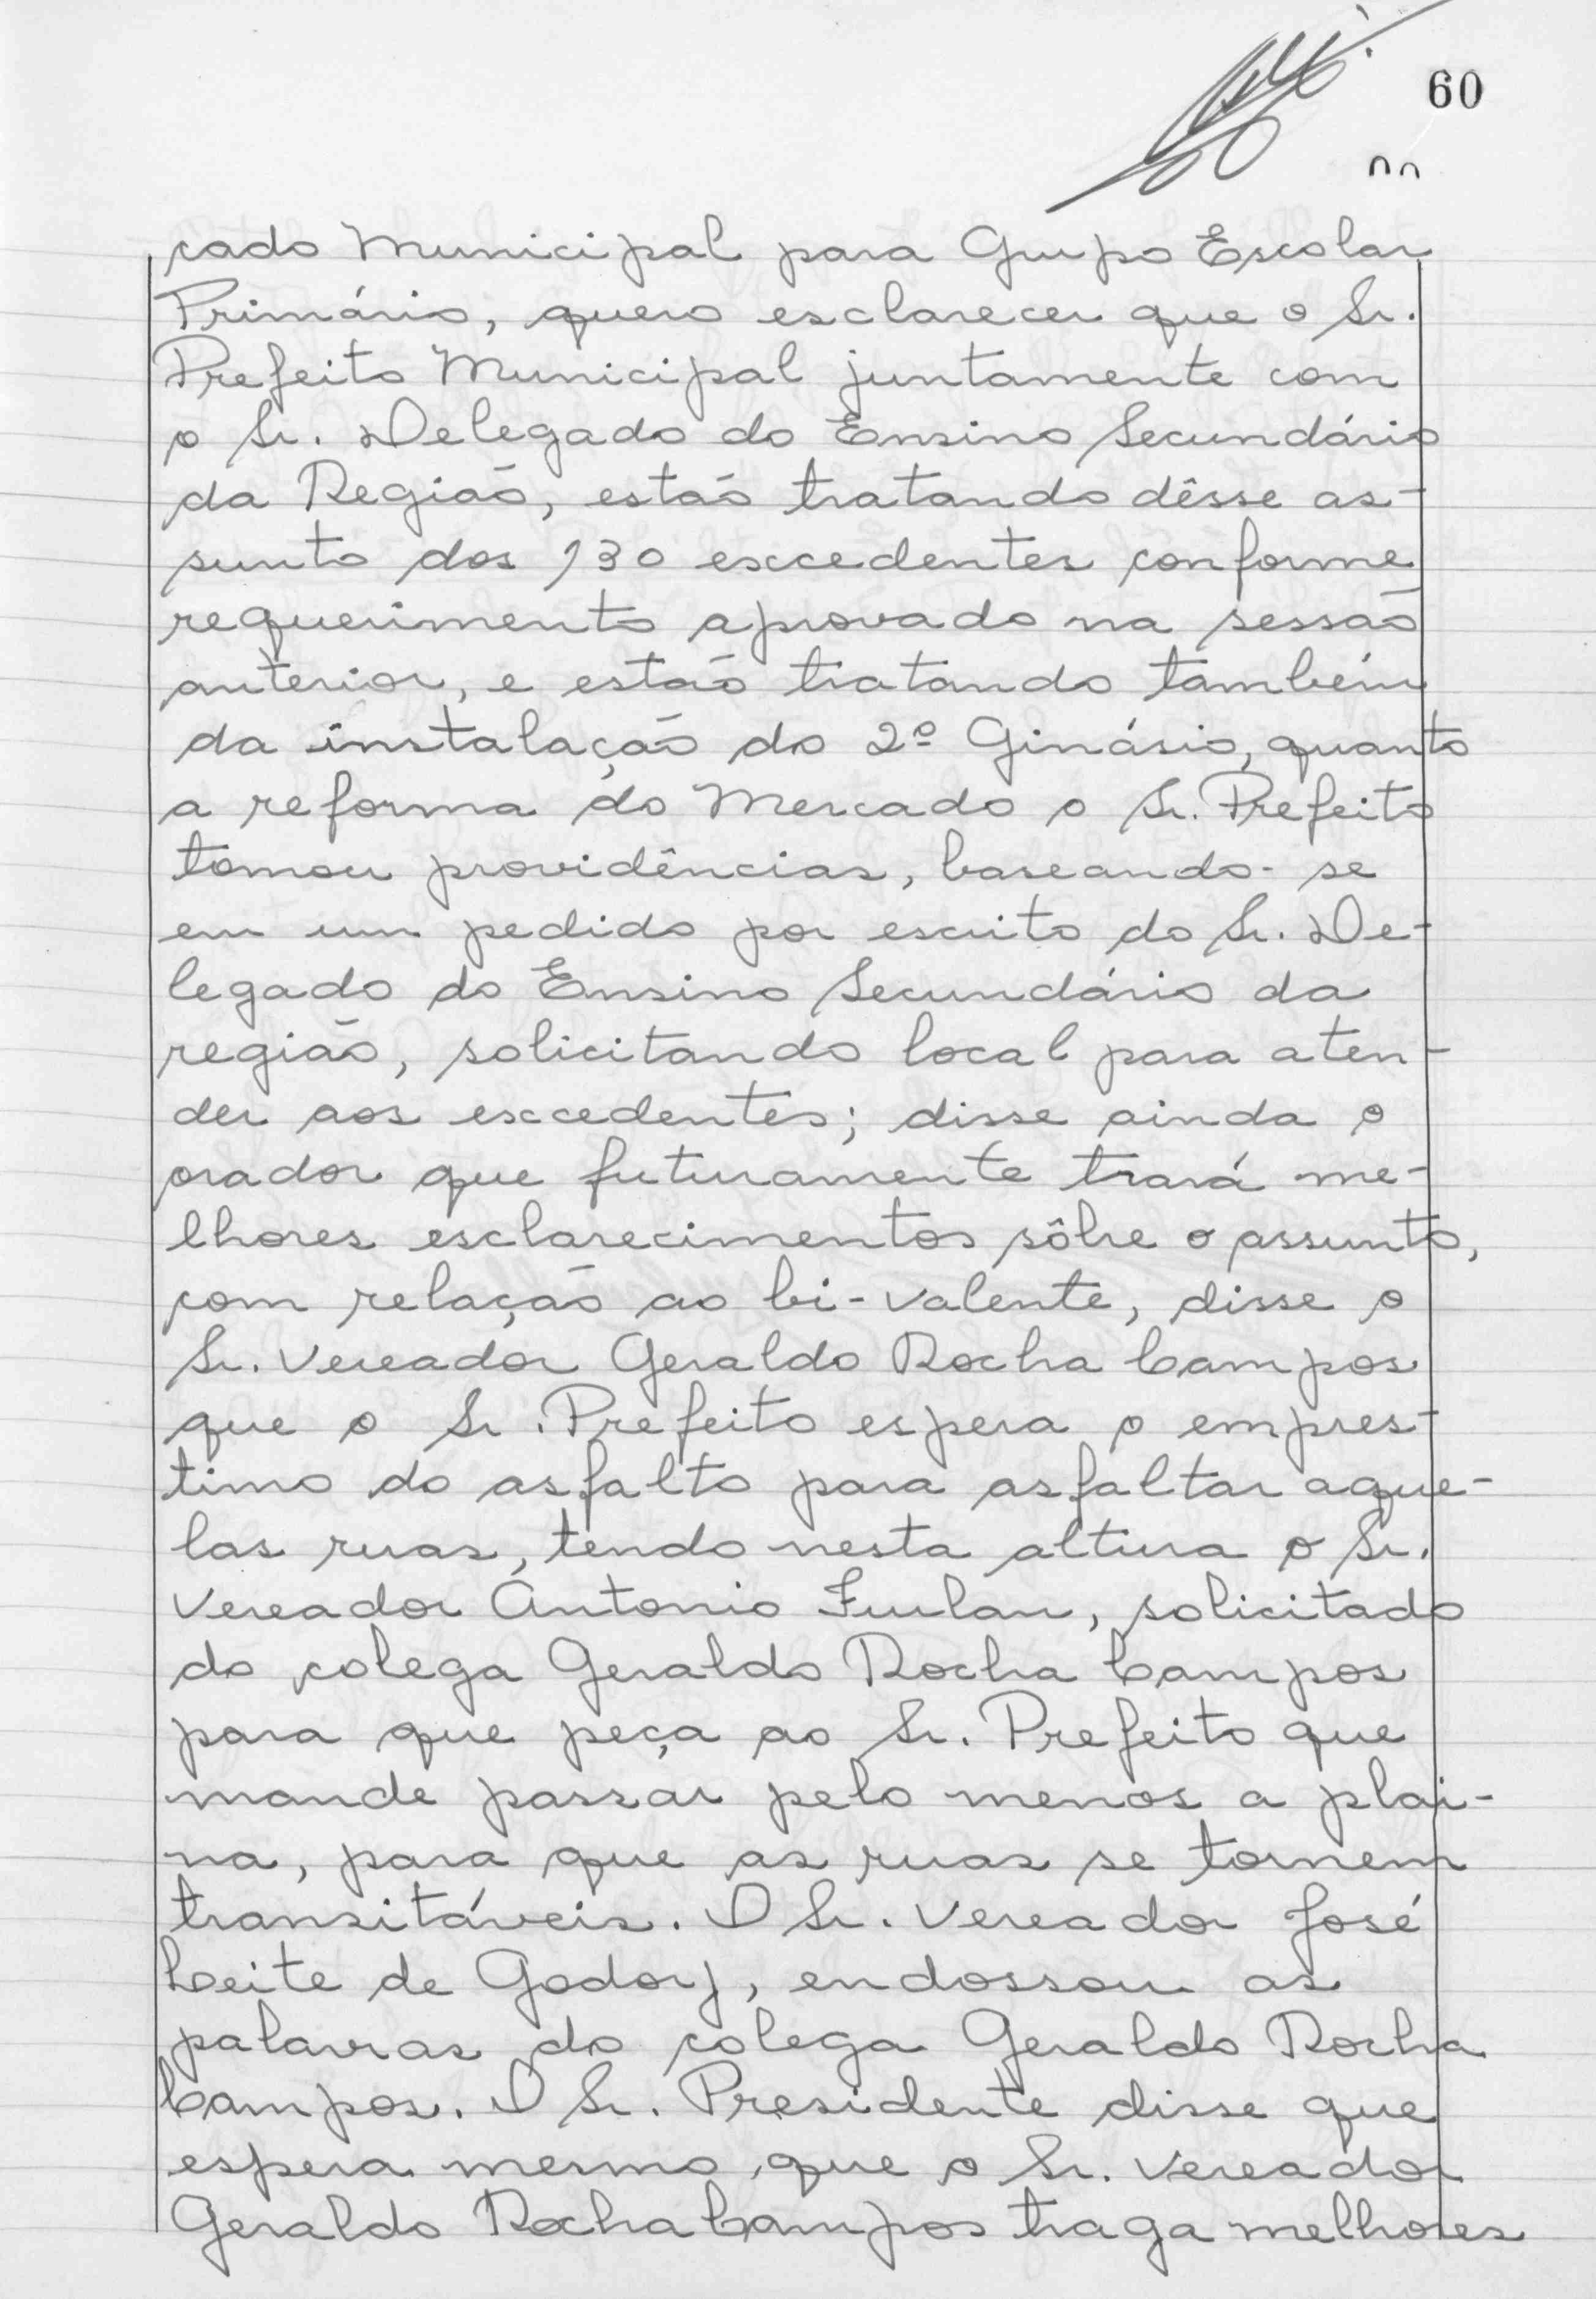 60
cado Municipal para Grupo Escolar
Primário, quero esclarecer que o Sr.
Prefeito Municipal juntamente com
o Sr. Delegado do Ensino Secundário
da Região, estão tratando dêsse as-
sunto dos 130 excedentes conforme
requerimento aprovado na sessão
anterior, e estão tratando também
da instalação do 2º Ginásio, quanto
a reforma do Mercado o Sr. Prefeito
tomou providências, baseando-se
em um pedido por escrito do Sr. De-
legado do Ensino Secundário da
região, solicitando local para aten-
der aos excedentes; disse ainda o
orador que futuramente trará me-
lhores esclarecimentos sôbre o assunto,
com relação ao bi-valente, disse o
Sr. Vereador Geraldo Rocha Campos
que o Sr. Prefeito espera o empres-
timo do asfalto para asfaltar aque-
las ruas, tendo nesta altura o Sr.
Vereador Antonio Furlan, solicitado
do colega Geraldo Rocha Campos
para que peça ao Sr. Prefeito que
mande passar pelo menos a plai-
na, para que as ruas se tornem
transitáveis. O Sr. Vereador José
Leite de Godoy, endossou as
palavras do colega Geraldo Rocha
Campos. O Sr. Presidente disse que
espera mesmo, que o Sr. Vereador
Geraldo Rocha Campos traga melhores